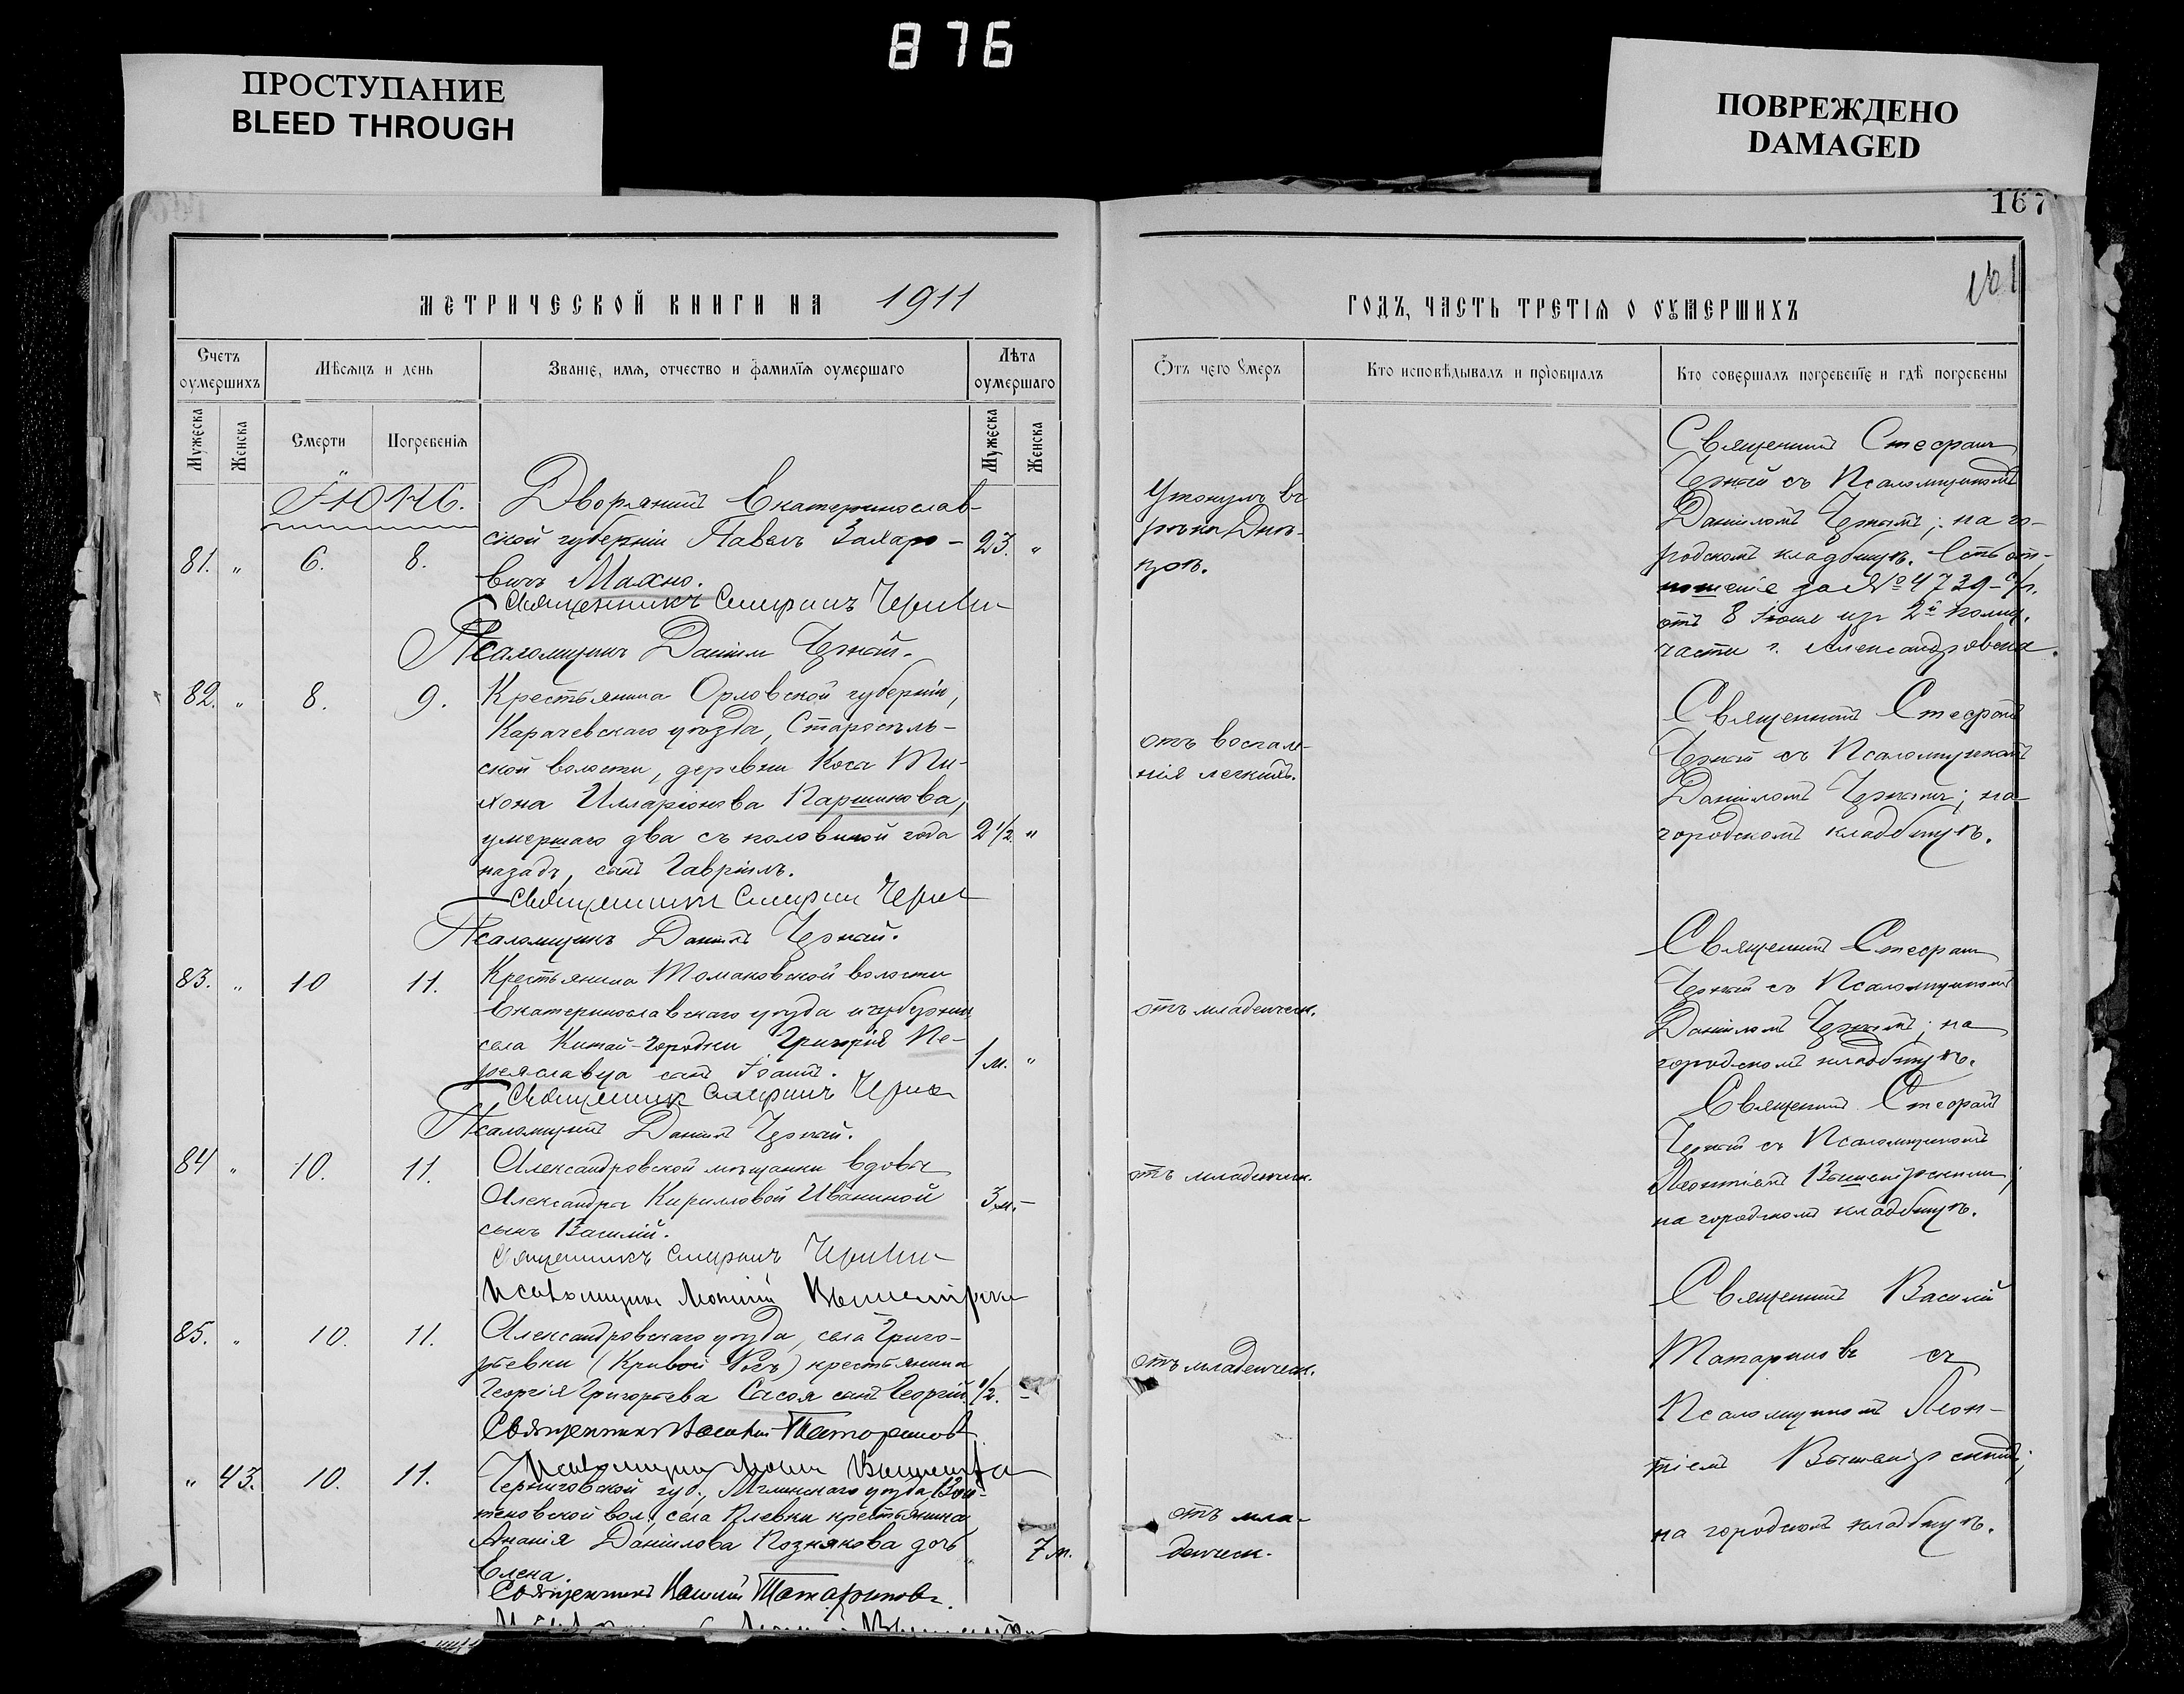 876
ПРОСТУПАНИЕ
BLEED THROUGH
ПОВРЕЖДЕНО
DAMAGED
167
№ 1
МЕТРИЧЕСКОЙ КНИГИ НА 1911
ГОДЪ, ЧАСТЬ ТРЕТІѦ О ОУМЕРШИХЪ
Счетъ оумершихъ
Мѣсѧцъ и день
Званіе, имѧ, отчество и фамилїѧ оумершаго
Лѣта оумершаго
Мужеска
Женска
Смерти
Погребенїѧ
Мужеска
Женска
Ѿтъ чего ѹмеръ
Кто исповѣдывалъ и прїобщалъ
Кто совершалъ погребенїе и гдѣ погребены
Іюнь.
81. " 6. 8.
Дворянинъ Екатеринослав-
ской губерніи Павелъ Захаро-
вичъ Махно.
23. "
Священникъ Стефанъ Черный
Псаломщикъ Даніилъ Черный.
Утонулъ въ
рѣкѣ Днѣ-
прѣ.
Священникъ Стефанъ
Черный съ Псаломщикомъ
Даніиломъ Чернымъ; на го-
родскомъ кладбищѣ. Есть от-
ношеніе за № 4739
отъ 8 Іюня изъ 2й полиц.
части г. Александровска.
82. " 8. 9.
Крестьянина Орловской губерніи,
Карачевскаго уѣзда, Старосель-
ской волости, деревни Коса Ти-
хона Илларіонова Паршикова,
умершаго два съ половиной года
назадъ, сынъ Гавріилъ.
2 1/2. "
Священникъ Стефанъ Черный
Псаломщикъ Даніилъ Черный.
отъ воспале-
нія легкихъ.
Священникъ Стефанъ
Черный съ Псаломщикомъ
Даніиломъ Чернымъ; на
городскомъ кладбищѣ.
83. " 10 11.
Крестьянина Томаковской волости
Екатеринославскаго уѣзда и губерніи,
села Китай-Городки Григорія Пе-
реяславца сынъ Іоаннъ.
1 м. "
Священникъ Стефанъ Черный
Псаломщикъ Даніилъ Черный.
отъ младенческ.
Священникъ Стефанъ
Черный съ Псаломщикомъ
Даніиломъ Чернымъ; на
городскомъ кладбищѣ.
84 " 10. 11.
Александровской мѣщанки вдовы
Александры Кирилловой Иваниной
сынъ Василій.
3 м. -
Священникъ Стефанъ Черный
Псаломщикъ Леонтій Вышемірскій
отъ младенческ.
Священникъ Стефанъ
Черный съ Псаломщикомъ
Леонтіемъ Вышемірскимъ;
на городскомъ кладбищѣ.
85. " 10. 11.
Александровскаго уѣзда, села Григо-
рьевки (Кривой Рогъ) крестьянина
Георгія Григорьева Сасоя сынъ Георгій.
1/2. -
Священникъ Василій Татариновъ
Псаломщикъ Леонтій Вышемірскій
отъ младенческ.
Священникъ Василій
Татариновъ съ
Псаломщикомъ Леон-
тіемъ Вышемірскимъ;
на городскомъ кладбищѣ.
" 43. 10. 11.
Черниговской губ., Мглинскаго уѣзда,
вол., села Плевки крестьянина
Ананія Даніилова Познякова дочь
Елена.
" 7 м.
Священникъ Василій Татариновъ.
отъ мла-
денческ.